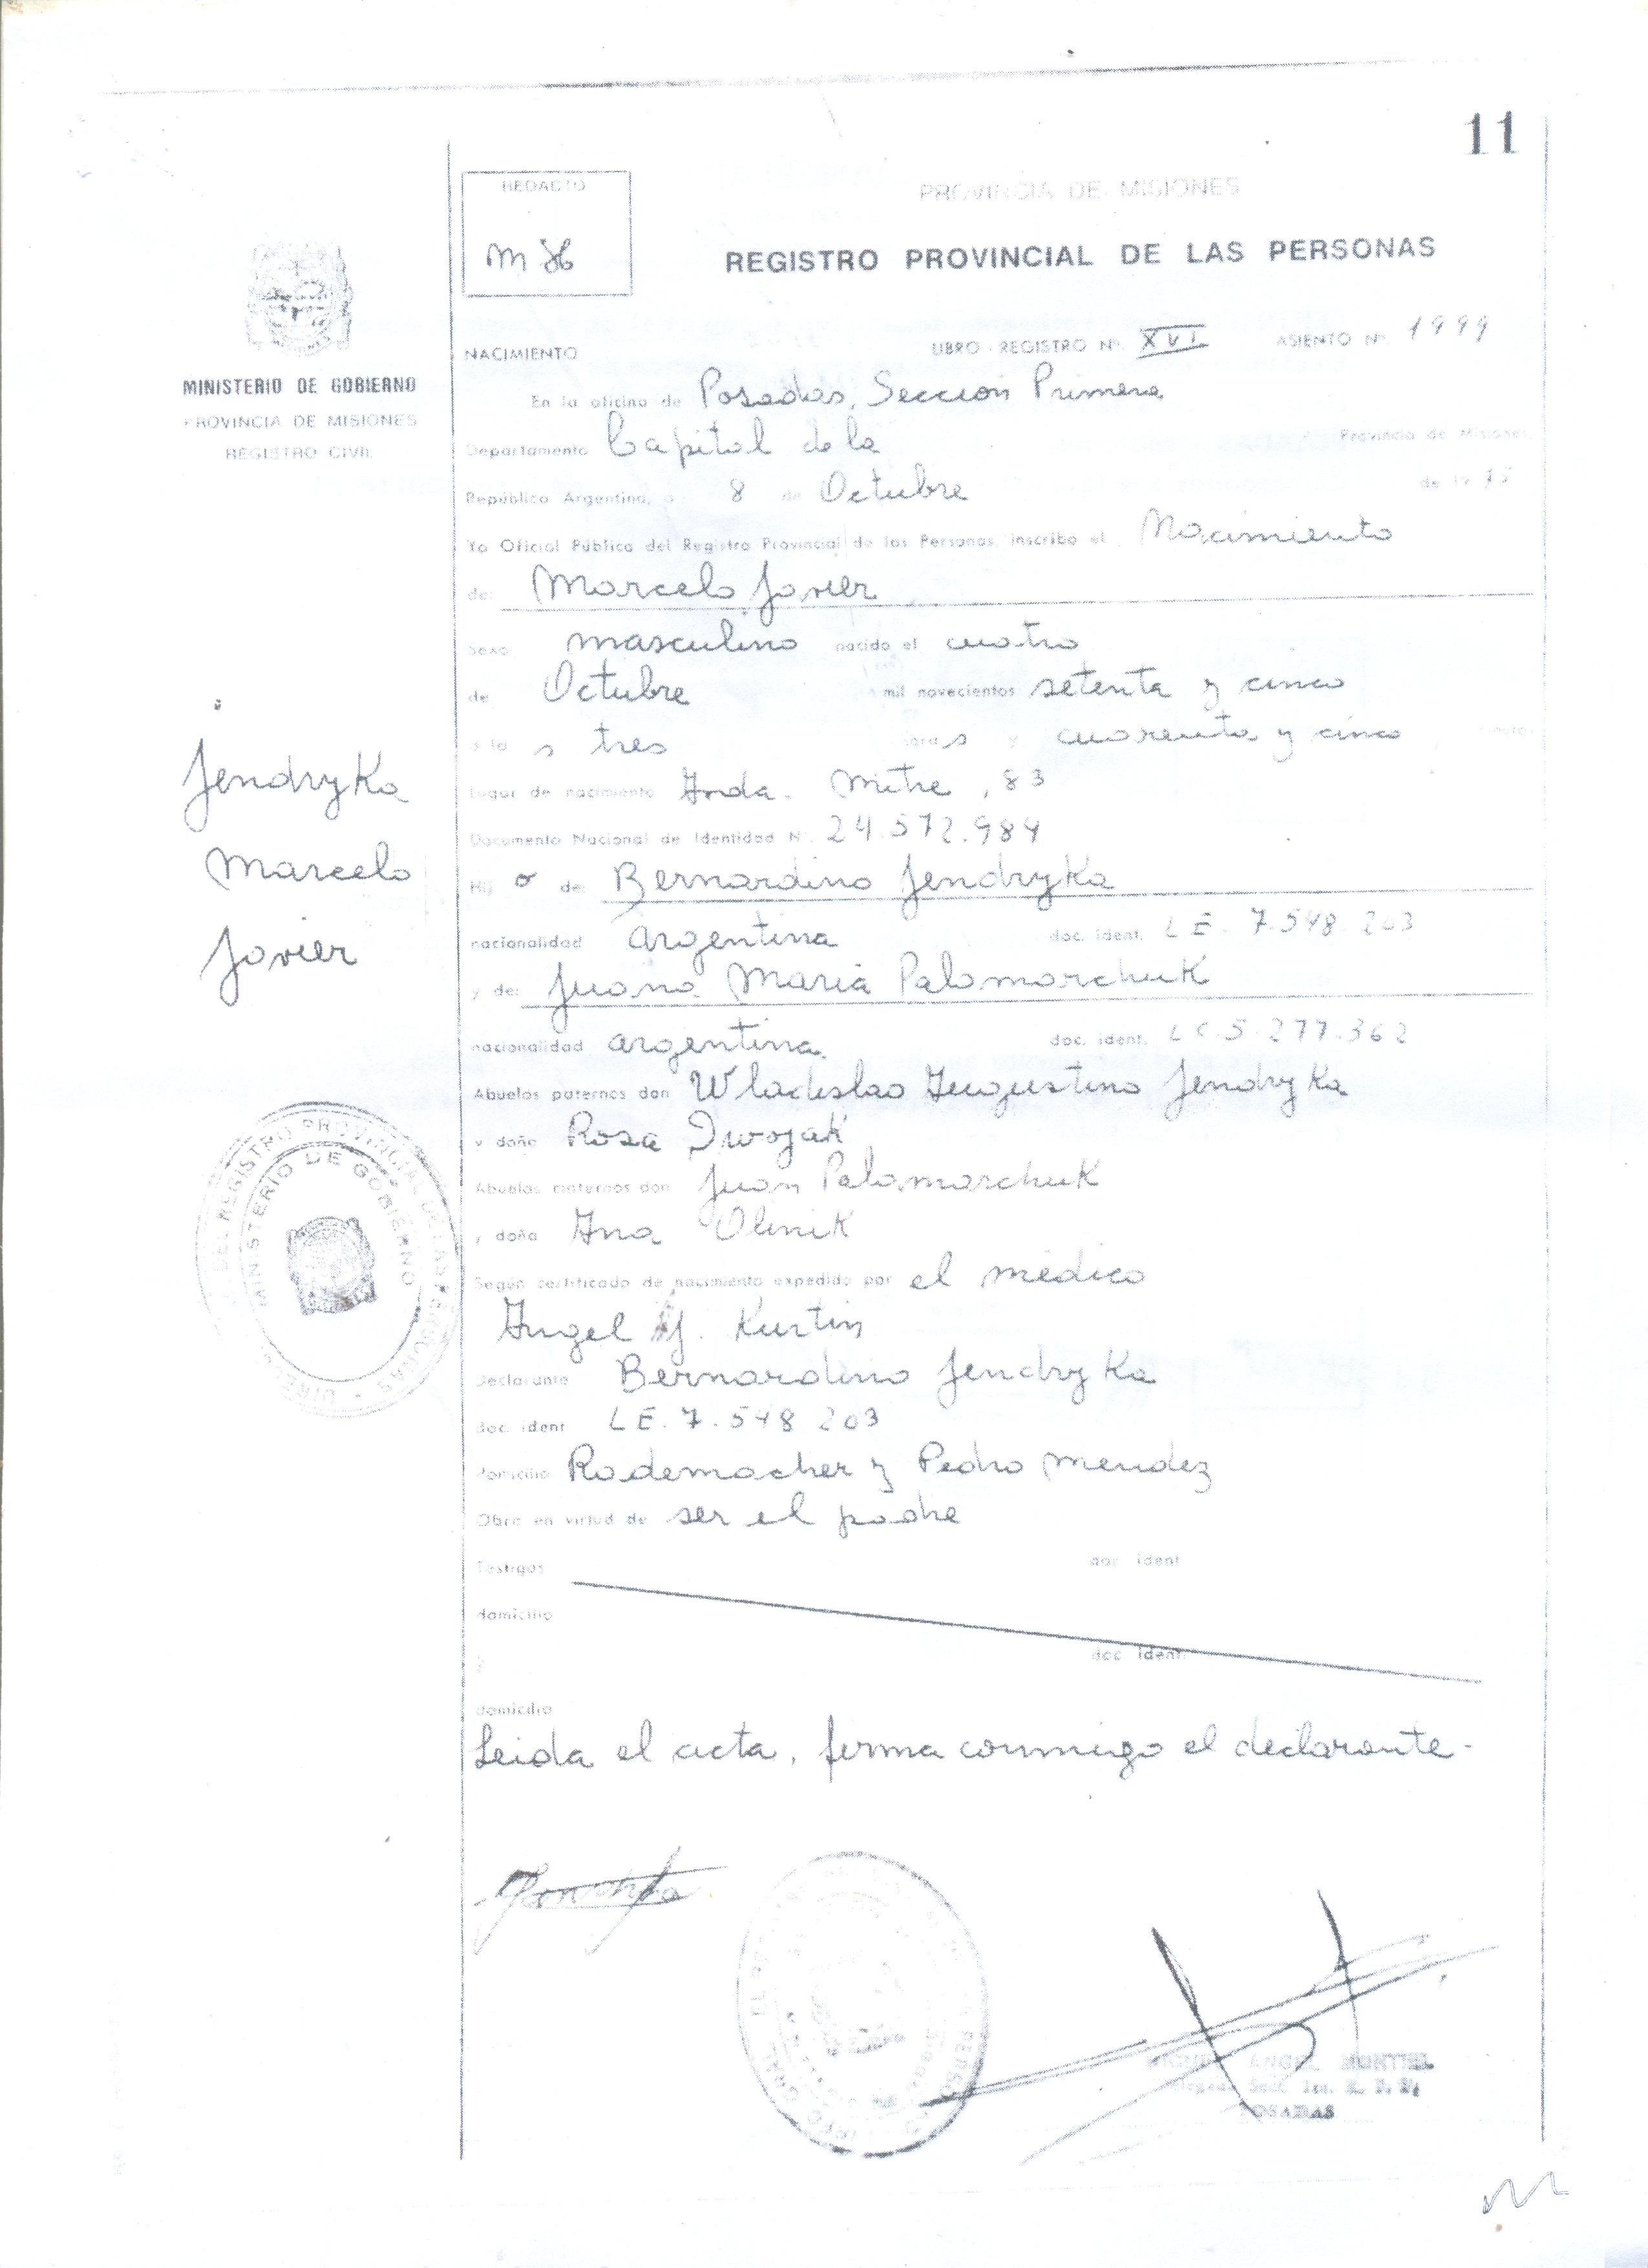 11
REDACTO
PROVINCIA DE MISIONES
REGISTRO PROVINCIAL DE LAS PERSONAS
MINISTERIO DE GOBIERNO
PROVINCIA DE MISIONES
REGISTRO CIVIL
NACIMIENTO LIBRO - REGISTRO Nº XVI ASIENTO Nº 1999
En la oficina de Posadas, Sección Primera
Departamento Capital de la Provincia de Misiones,
República Argentina, a 8 de Octubre de 1975
Yo Oficial Público del Registro Provincial de las Personas, inscribo el Nacimiento
de: Marcelo Javier
Sexo masculino nacido el cuatro
de Octubre mil novecientos setenta y cinco
a la s tres horas y cuarenta y cinco minutos
Lugar de nacimiento Avda. Mitre, 83
Documento Nacional de Identidad Nº 24.572.984
Hij o de: Bernardino Jendryka
nacionalidad argentina doc. ident. LE. 7.548.203
y de: Juana María Palamarchuk
nacionalidad argentina. doc. ident. LC.5.277.362
Abuelos paternos don Wladislao Augustino Jendryka
y doña Rosa Dwojak
Abuelos maternos don Juan Palamarchuk
y doña Ana Olinik
Según certificado de nacimiento expedido por el médico
Angel J. Kurtin
declarante Bernardino Jendryka
doc. ident LE.7.548 203
domicilio Rademacher y Pedro Mendez
Obra en virtud de ser el padre
Testigos doc ident
domicilio
y doc ident.
domicilio
Leida el acta, firma conmigo el declarante-
Jendryka
Marcelo
Javier
DEL REGISTRO PROVINCIAL DE LAS PERSONAS
MINISTERIO DE GOBIERNO
MIGUEL ANGEL MONTIEL
Delegado Secc 1ra. R. P. P.
POSADAS